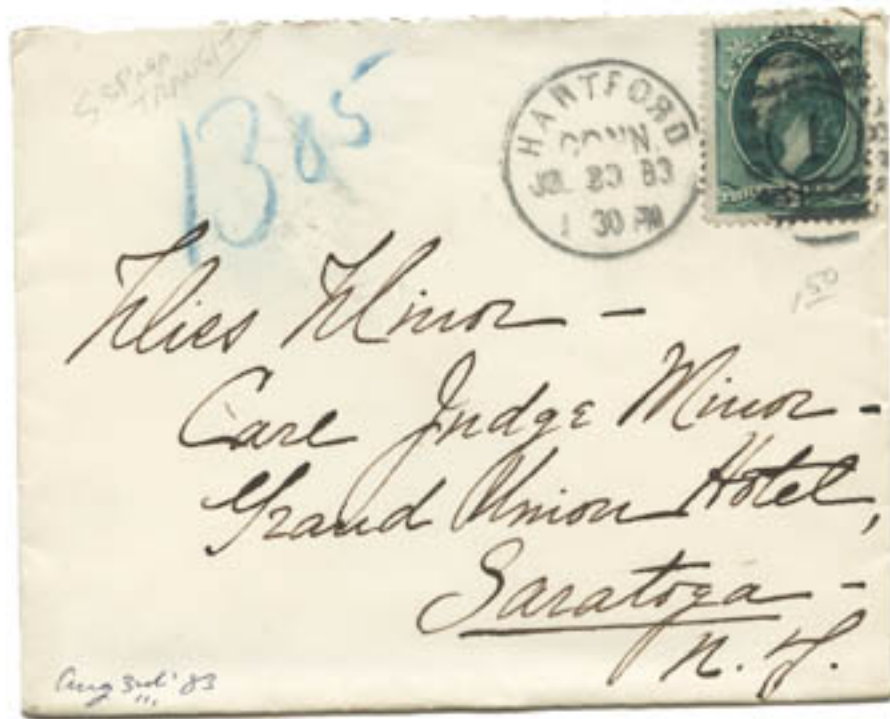 TRANSIT
1385
HARTFORD
CONN.
JUL 23 83
1 30 PM
1 50
Miss Minor -
Care Judge Minor -
Grand Union Hotel,
Saratoga -
N. Y.
Aug 3rd '83